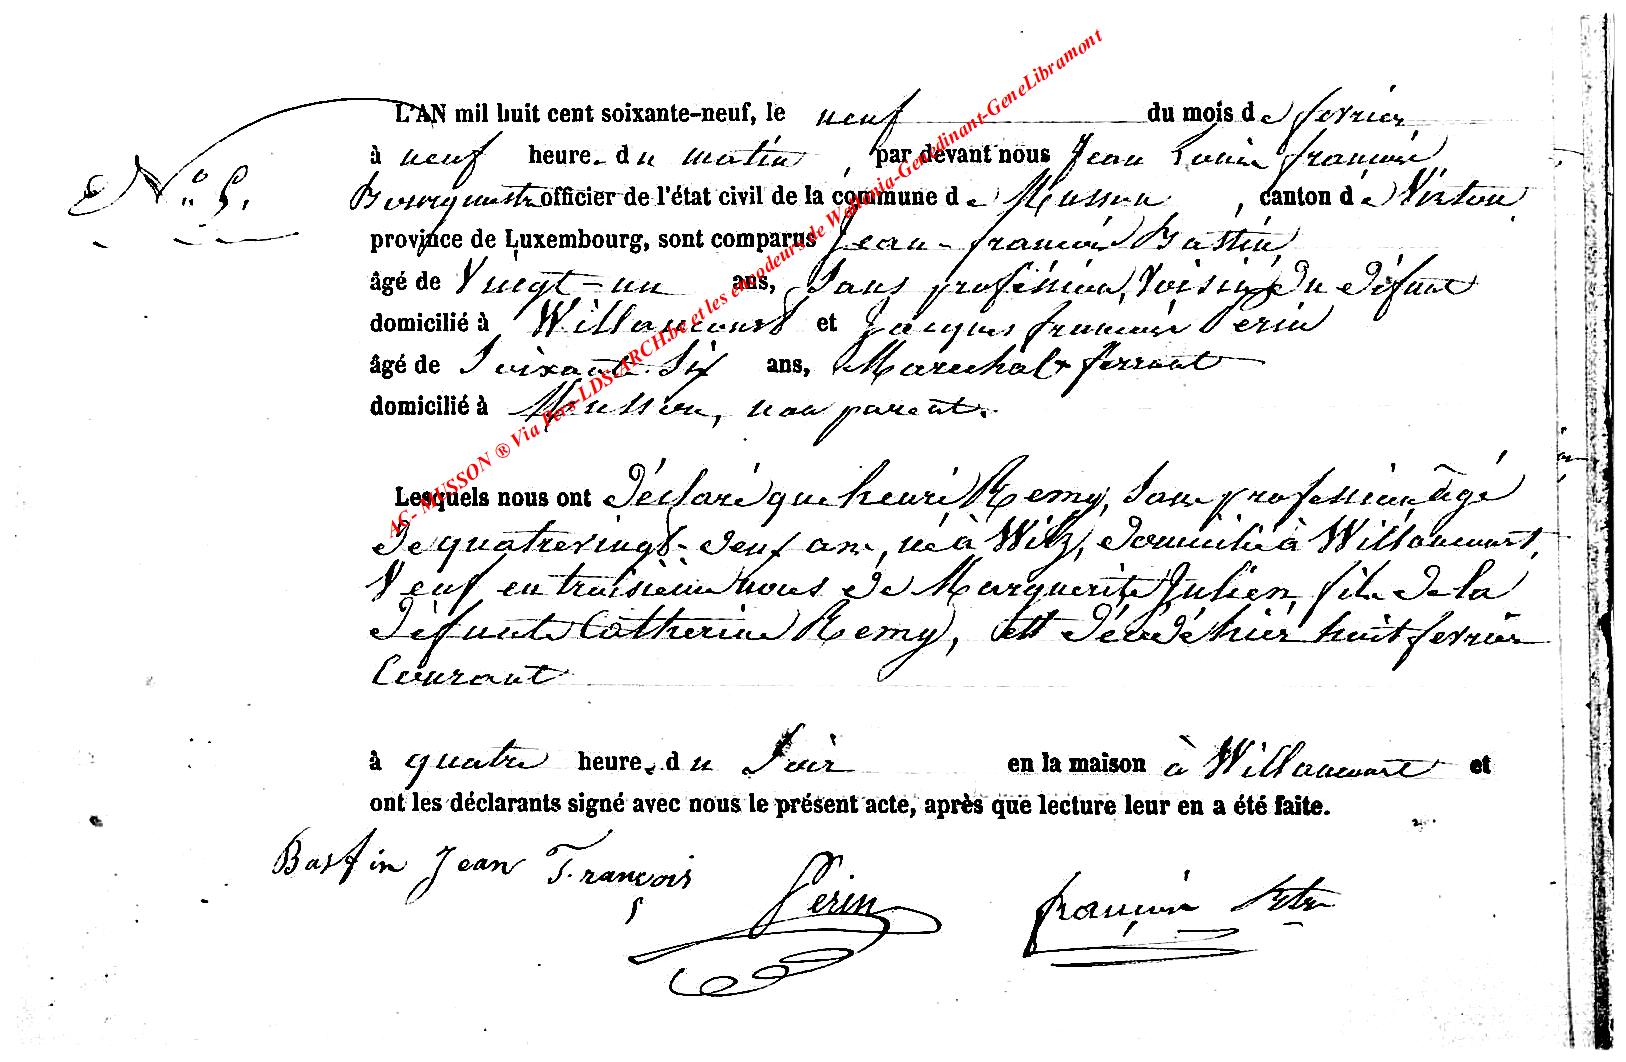 L'AN mil huit cent soixante-neuf, le neuf du mois de fevrier
à neuf heure. du matin, par devant nous Jean Louis françois
N.° 5. officier de l'état civil de la commune de Musson, canton de Virton
province de Luxembourg, sont comparus Jean-françois Bastin
âgé de Vingt-un ans, Sans profession, voisin du défunt
domicilié à Willancourt et Jacques françois Perin
âgé de Soixante Six ans, Marechal ferrant
domicilié à Musson, non parent.
Lesquels nous ont déclaré que henri Remy, sans profession âgé
de quatrevingt-deux ans, né à Wiltz, domicilié à Willancourt,
Veuf en troisième nous de Marguerite Julien, fils de la
défunte Catherine Remy, est décédé hier huit fevrier
Courant
à quatre heure. du Soir en la maison à Willancourt et
ont les déclarants signé avec nous le présent acte, après que lecture leur en a été faite.
Bastin Jean François Perin françois
AC-MUSSON ® Via Pers-LDS-ARCH.be et les encodeurs de Webmia-Genedinant-GeneLibramont